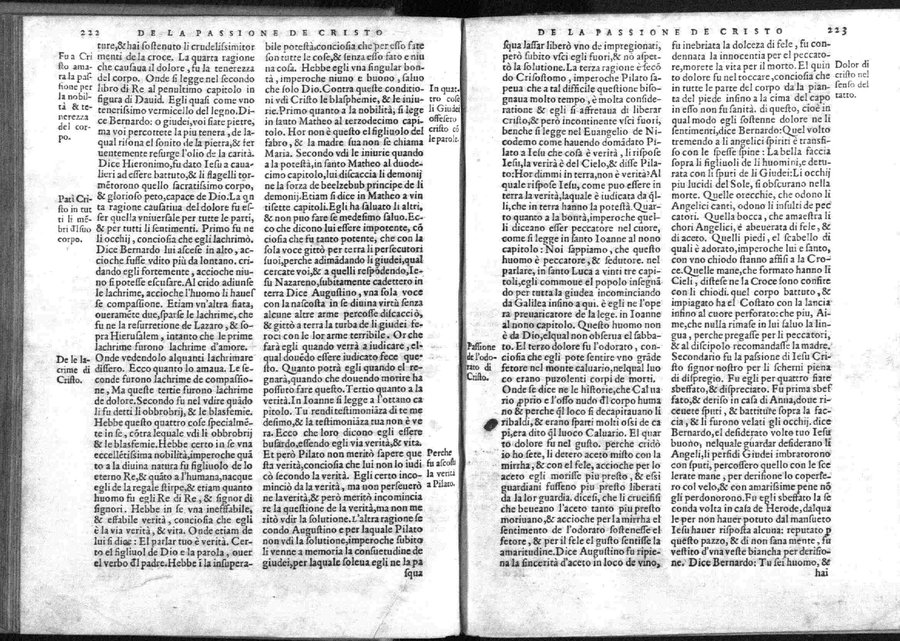 222 DE LA PASSIONE DE CRISTO
Fu a Cri
sto ama-
ra la pas-
sione per
la nobil-
tà & te-
nerezza
del cor-
po.
Pati Cri-
sto in tut
ti li mē-
bri d'l suo
corpo.
De le la-
crime di
Cristo.
ture, & hai sostenuto li crudelissimi tor
menti de la croce. La quarta ragione
che causaua il dolore, fu la tenerezza
del corpo. Onde si legge nel secondo
libro di Re al penultimo capitolo in
figura di Dauid. Egli quasi come vno
tenerissimo vermicello del legno. Di-
ce Bernardo: o giudei, voi siate pietre,
ma voi percottete la piu tenera, de la-
qual risona el sonito de la pietra, & fer
uentemente resurge l'olio de la carità.
Dice Hieronimo, fu dato Iesu a caua-
lieri ad essere battuto, & li flagelli tor-
mētorono quello sacratissimo corpo,
& glorioso peto, capace de Dio. La qn
ta ragione causatiua del dolore fu es-
ser quella vniuersale per tutte le parti,
& per tutti li sentimenti. Primo fu ne
li occhij, conciosia che egli lachrimò.
Dice Bernardo lui ascese in alto, ac-
cioche fusse vdito più da lontano, cri-
dando egli fortemente, accioche niu-
no si potesse escusare. Al crido adiunse
le lachrime, accioche l'huomo li hauef
se compassione. Etiam vn'altra fiata,
oueramēte due, sparse le lachrime, che
fu ne la resurretione de Lazaro, & so-
pra Hierusalem, intanto che le prime
lachrime furono lachrime d'amore.
Onde vedendolo alquanti lachrimare
dissero. Ecco quanto lo amaua. Le se-
conde furono lachrime de compassio-
ne, Ma queste tertie furono lachrime
de dolore. Secondo fu nel vdire quādo
li fu detti li obbrobrij, & le blasfemie.
Hebbe questo quattro cose specialmē-
te in se, cōtra lequale vdì li obbrobrij
& le blasfemie. Hebbe certo in se vna
eccellētissima nobilità, imperoche quā
to a la diuina natura fu figliuolo de lo
eterno Re, & quāto a l'humana, nacque
egli de la regale stirpe, & etiam quanto
huomo fu egli Re di Re, & signor di
signori. Hebbe in se vna ineffabile,
& essabile verità, conciosia che egli
è la via verità, & vita. Onde etiam de
lui si dice: El parlar tuo è verità. Cer-
to el figliuol de Dio e la parola, ouer
el verbo dl padre. Hebbe ī la insupera-
bile potestà, conciosia che per esso fate
son tutte le cose, & senza esso fate è niu
na cosa. Hebbe egli vna singular bon-
tà, imperoche niuno e buono, saluo
che solo Dio. Contra queste conditio
ni vdì Cristo le blasphemie, & le iniu-
rie. Primo quanto a la nobilità, si lege
in santo Matheo al terzodecimo capi-
tolo. Hor non è questo el figliuolo del
fabro, & la madre sua non se chiama
Maria. Secondo vdì le iniurie quando
a la potestà, in santo Matheo al duode-
cimo capitolo, lui discaccia li demonij
ne la forza de beelzebub principe de li
demonij. Etiam si dice in Matheo a vin
tisette capitoli. Egli ha saluato li altri,
& non puo fare se medesimo saluo. Ec-
co che dicono lui essere impotente, cō
ciosia che fu tanto potente, che con la
sola voce gittò per terra li persecutori
suoi, perche adimādādo li giudei, qual
cercate voi, & a quelli respōdendo, Ie-
su Nazareno, subitamente cadettero in
terra Dice Augustino, vna sola voce
con la nascosta in se diuina virtù senza
alcune altre arme percosse discacciò,
& gittò a terra la turba de li giudei fe-
roci con le lor arme terribile. Or che
farà egli quando verrà a iudicare, el-
qual douēdo essere iudicato fece que-
sto. Quanto potrà egli quando el re-
gnarà, quando che douendo morire ha
possuto fare questo. Tertio quanto a la
verità. In Ioanne si legge a l'ottauo ca
pitolo. Tu rendi testimoniāza di te me
desimo, & la testimoniāza tua non è ve
ra. Ecco che loro dicono egli essere
busardo, essendo egli via verità, & vita.
Et però Pilato non meritò sapere que
sta verità, conciosia che lui non lo iudi
cò secondo la verità. Egli certo inco-
minciò da la verità, ma non perseuerò
ne la verità, & però meritò incomincia
re la questione de la verità, ma non me
ritò vdir la solutione. L'altra ragione se
condo Augustino e per laquale Pilato
non vdì la solutione, imperoche subito
li venne a memoria la consuetudine de
giudei, per laquale soleua egli ne la pa
squa
In quat-
tro cose
li Giudei
offesero
cristo cō
le parole.
Perche
fu ascosta
la verità
a Pilato.
DE LA PASSIONE DE CRISTO 223
Passione
de l'odo-
rato di
Cristo.
squa lassar liberò vno de impregionati,
però subito vscì egli fuori, & nō aspet-
tò la solutione. La terza ragione è secō
do Crisostomo, imperoche Pilato sa-
peua che a tal difficile questione biso-
gnaua molto tempo, & molta conside-
ratione & egli si affretaua di liberar
cristo, & però incontinente vscì fuori,
benche si legge nel Euangelio de Ni-
codemo come hauendo domādato Pi-
lato a Iesu che cosa è verità, li rispose
Iesu, la verità è del Cielo, & disse Pila-
to: Hor dimmi in terra, non è verità? Al
quale rispose Iesu, come puo essere in
terra la verità, laquale è iudicata da q̄l-
li, che in terra hanno la potestà. Quar-
to quanto a la bontà, imperoche quel-
li diceano esser peccatore nel cuore,
come si legge in santo Ioanne al nono
capitolo: Noi sappiamo, che questo
huomo è peccatore, & sedutore. nel
parlare, in santo Luca a vinti tre capi-
toli, egli commoue el popolo insegnā
do per tutta la giudea incominciando
da Galilea insino a qui. è egli ne l'ope
ra preuaricatore de la lege. in Ioanne
al nono capitolo. Questo huomo non
è da Dio, elqual non obserua el sabba-
to. El terzo dolore fu l'odorato, con-
ciosia che egli pote sentire vno grāde
fetore nel monte caluario, nelqual luo
co erano puzolenti corpi de morti.
Onde se dice ne le historie, che Caluа
rio ꝓprio e l'osso nudo dl corpo huma
no & perche ql loco si decapitauano li
ribaldi, & erano sparti molti ossi de ca
pi, era dito ql luoco Caluario. El quar
to dolore fu nel gusto. perche cridò
io ho sete, li detero aceto misto con la
mirrha, & con el fele, accioche per lo
aceto egli morisse piu presto, & essi
guardiani fussero piu presto liberati
da la lor guardia. dicesi, che li crucifisi
che beueano l'aceto tanto piu presto
moriuano, & accioche per la mirrha el
sentimento de l'odorato sostenesse el
fetore, & per il fele el gusto sentisse la
amaritudine. Dice Augustino fu ripie-
na la sincerità d'aceto in loco de vino,
fu inebriata la dolceza di fele, fu con-
dennata la innocentia per el peccato-
re, morete la vita per il morto. El quin
to dolore fu nel toccare, conciosia che
in tutte le parte del corpo da la pian-
ta del piede insino a la cima del capo
in esso non fu sanità. di questo, cioè in
qual modo egli sostenne dolore ne li
sentimenti, dice Bernardo: Quel volto
tremendo a li angelici spiriti è transfi-
so con le spesse spine: La bella faccia
sopra li figliuoli de li huomini, e detur-
rata con li sputi de li Giudei: Li occhij
piu lucidi del Sole, si obscurano nella
morte. Quelle orecchie, che odono li
Angelici canti, odono li insulti de pec
catori. Quella bocca, che amaestra li
chori Angelici, è abeuerata de fele, &
di aceto. Quelli piedi, el scabello di
quali è adorato, imperoche lui e santo,
con vno chiodo stanno affisi a la Cro-
ce. Quelle mane, che formato hanno li
Cieli, distese ne la Croce sono confite
con li chiodi. quel corpo battuto, &
impiagato ha el Costato con la lancia
insino al cuore perforato: che piu, Ai-
me, che nulla rimase in lui saluo la lin-
gua, perche pregasse per li peccatori,
& al discipolo recomandasse la madre.
Secondario fu la passione di Iesu Cri-
sto signor nostro per li schermi piena
di dispregio. Fu egli per quattro fiate
sbeffato, & dispreciato. Fu prima sbef
fato, & deriso in casa di Anna, doue ri-
ceuete sputi, & battiture sopra la fac-
cia, & li furono velati gli occhij. dice
Bernardo, el desiderato volto tuo Iesu
buono, nelquale guardar desiderano li
Angeli, li perfidi Giudei imbratorono
con sputi, percossero quello con le sce
lerate mane, per derisione lo coperse-
ro col velo, & con amarissime pene nō
gli perdonorono. Fu egli sbeffato la se
conda volta in casa de Herode, dalqua
le per non hauer potuto dal mansueto
Iesu hauer risposta alcuna: reputato ꝑ
questo pazzo, & di non sana mente, fu
vestito d'vna veste bianca per derisio-
ne. Dice Bernardo: Tu sei huomo, &
hai
Dolor di
cristo nel
senso del
tatto.